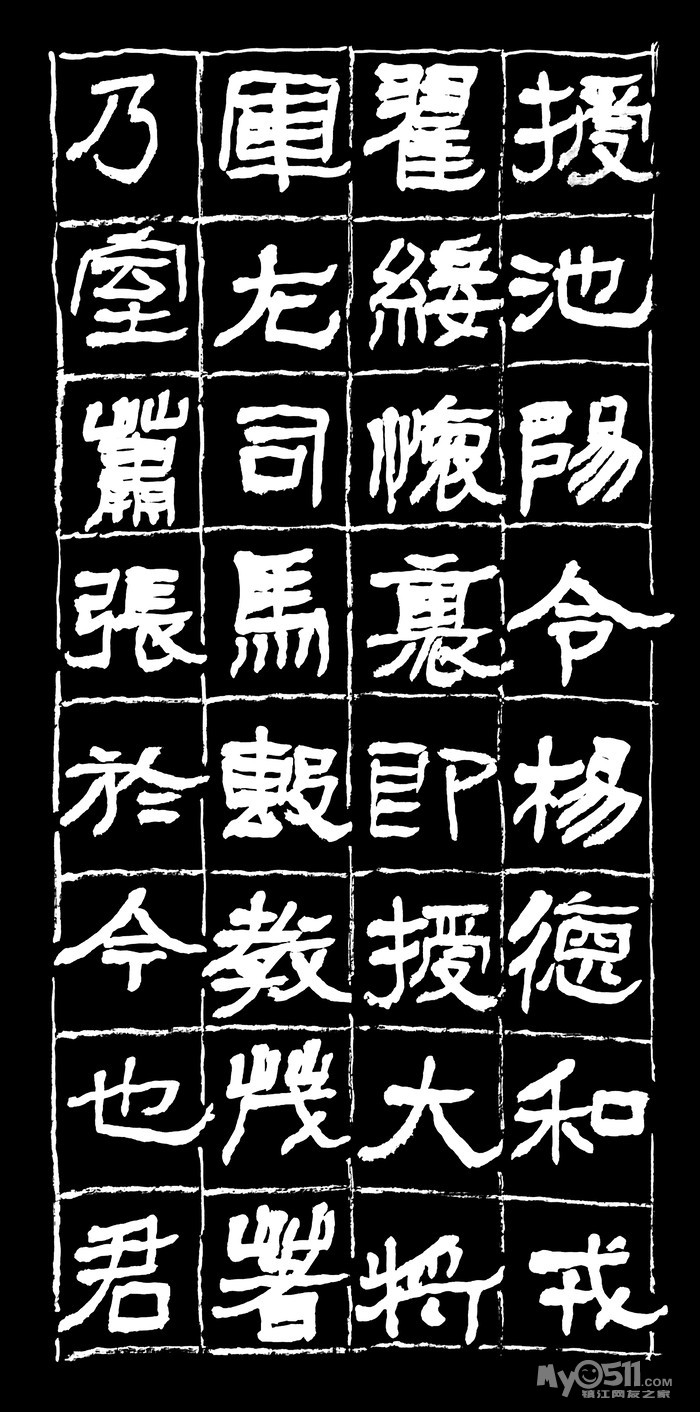 授池陽令楊德和戎
翟綏懷裏即授大將
軍左司馬毄教茂著
乃室蕭張於今也君
My0511.COM
镇江网友之家